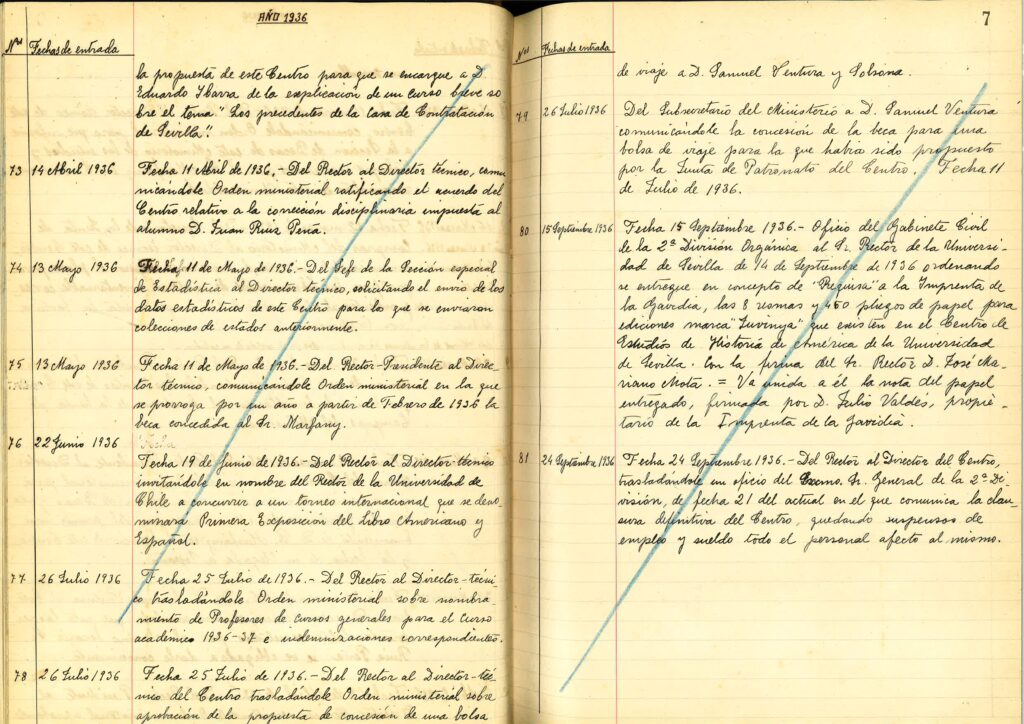 AÑO 1936
Nos Fechas de entrada
la propuesta de este Centro para que se encargue a D.
Eduardo Ibarra de la explicación de un curso breve so
bre el tema "Los precedentes de la casa de Contratación
de Sevilla".
73 14 Abril 1936 Fecha 11 Abril de 1936.- Del Rector al Director técnico, comu
nicándole Orden ministerial ratificando el acuerdo del
Centro relativo a la corrección disciplinaria impuesta al
alumno D. Juan Ruiz Peña.
74 13 Mayo 1936 Fecha 11 de Mayo de 1936.- Del Jefe de la Sección especial
de Estadística al Director técnico, solicitando el envío de los
datos estadísticos de este Centro para lo que se enviaron
colecciones de estados anteriormente.
75 13 Mayo 1936 Fecha 11 de Mayo de 1936.- Del Rector-Presidente al Direc
tor técnico, comunicándole Orden ministerial en la que
se prorroga por un año a partir de Febrero de 1936 la
beca concedida al Sr. Marfany.
76 22 Junio 1936 Fecha
Fecha 19 de Junio de 1936.- Del Rector al Director técnico
invitándole en nombre del Rector de la Universidad de
Chile a concurrir a un torneo internacional que se deno
minara Primera Exposición del Libro Americano y
Español.
77 26 Julio 1936 Fecha 25 Julio de 1936.- Del Rector al Director-técni
co trasladándole Orden ministerial sobre nombra
miento de Profesores de cursos generales para el curso
académico 1936-37 e indemnizaciones correspondientes.
78 26 Julio 1936 Fecha 25 Julio de 1936.- Del Rector al Director-téc
nico del Centro trasladándole Orden ministerial sobre
aprobación de la propuesta de concesión de una bolsa
7
Nos Fechas de entrada
de viaje a D. Samuel Ventura y Solsona.
79 26 Julio 1936 Del Subsecretario del Ministerio a D. Samuel Ventura
comunicándole la concesión de la beca para una
bolsa de viaje para la que había sido propuesto
por la Junta de Patronato del Centro. Fecha 11
de Julio de 1936.
80 15 Septiembre 1936 Fecha 15 Septiembre 1936.- Oficio del Gabinete Civil
de la 2ª División Orgánica al Sr. Rector de la Universi-
dad de Sevilla de 14 de Septiembre de 1936 ordenando
se entregue en concepto de "Requisa" a la Imprenta de
la Gavidia, las 8 resmas y 450 pliegos de papel para
ediciones marca "Luvinya" que existen en el Centro de
Estudios de Historia de América de la Universidad
de Sevilla. Con la firma del Sr. Rector D. José Ma-
riano Mota. = Vá unida a él la nota del papel
entregado, firmada por D. Julio Valdés, propie-
tario de la Imprenta de la Gavidia.
81 24 Septiembre 1936 Fecha 24 Septiembre 1936.- Del Rector al Director del Centro,
trasladándole un oficio del Excmo. Sr. General de la 2ª Di-
visión, de fecha 21 del actual en el que comunica la clau-
sura definitiva del Centro, quedando suspensos de
empleo y sueldo todo el personal afecto al mismo.